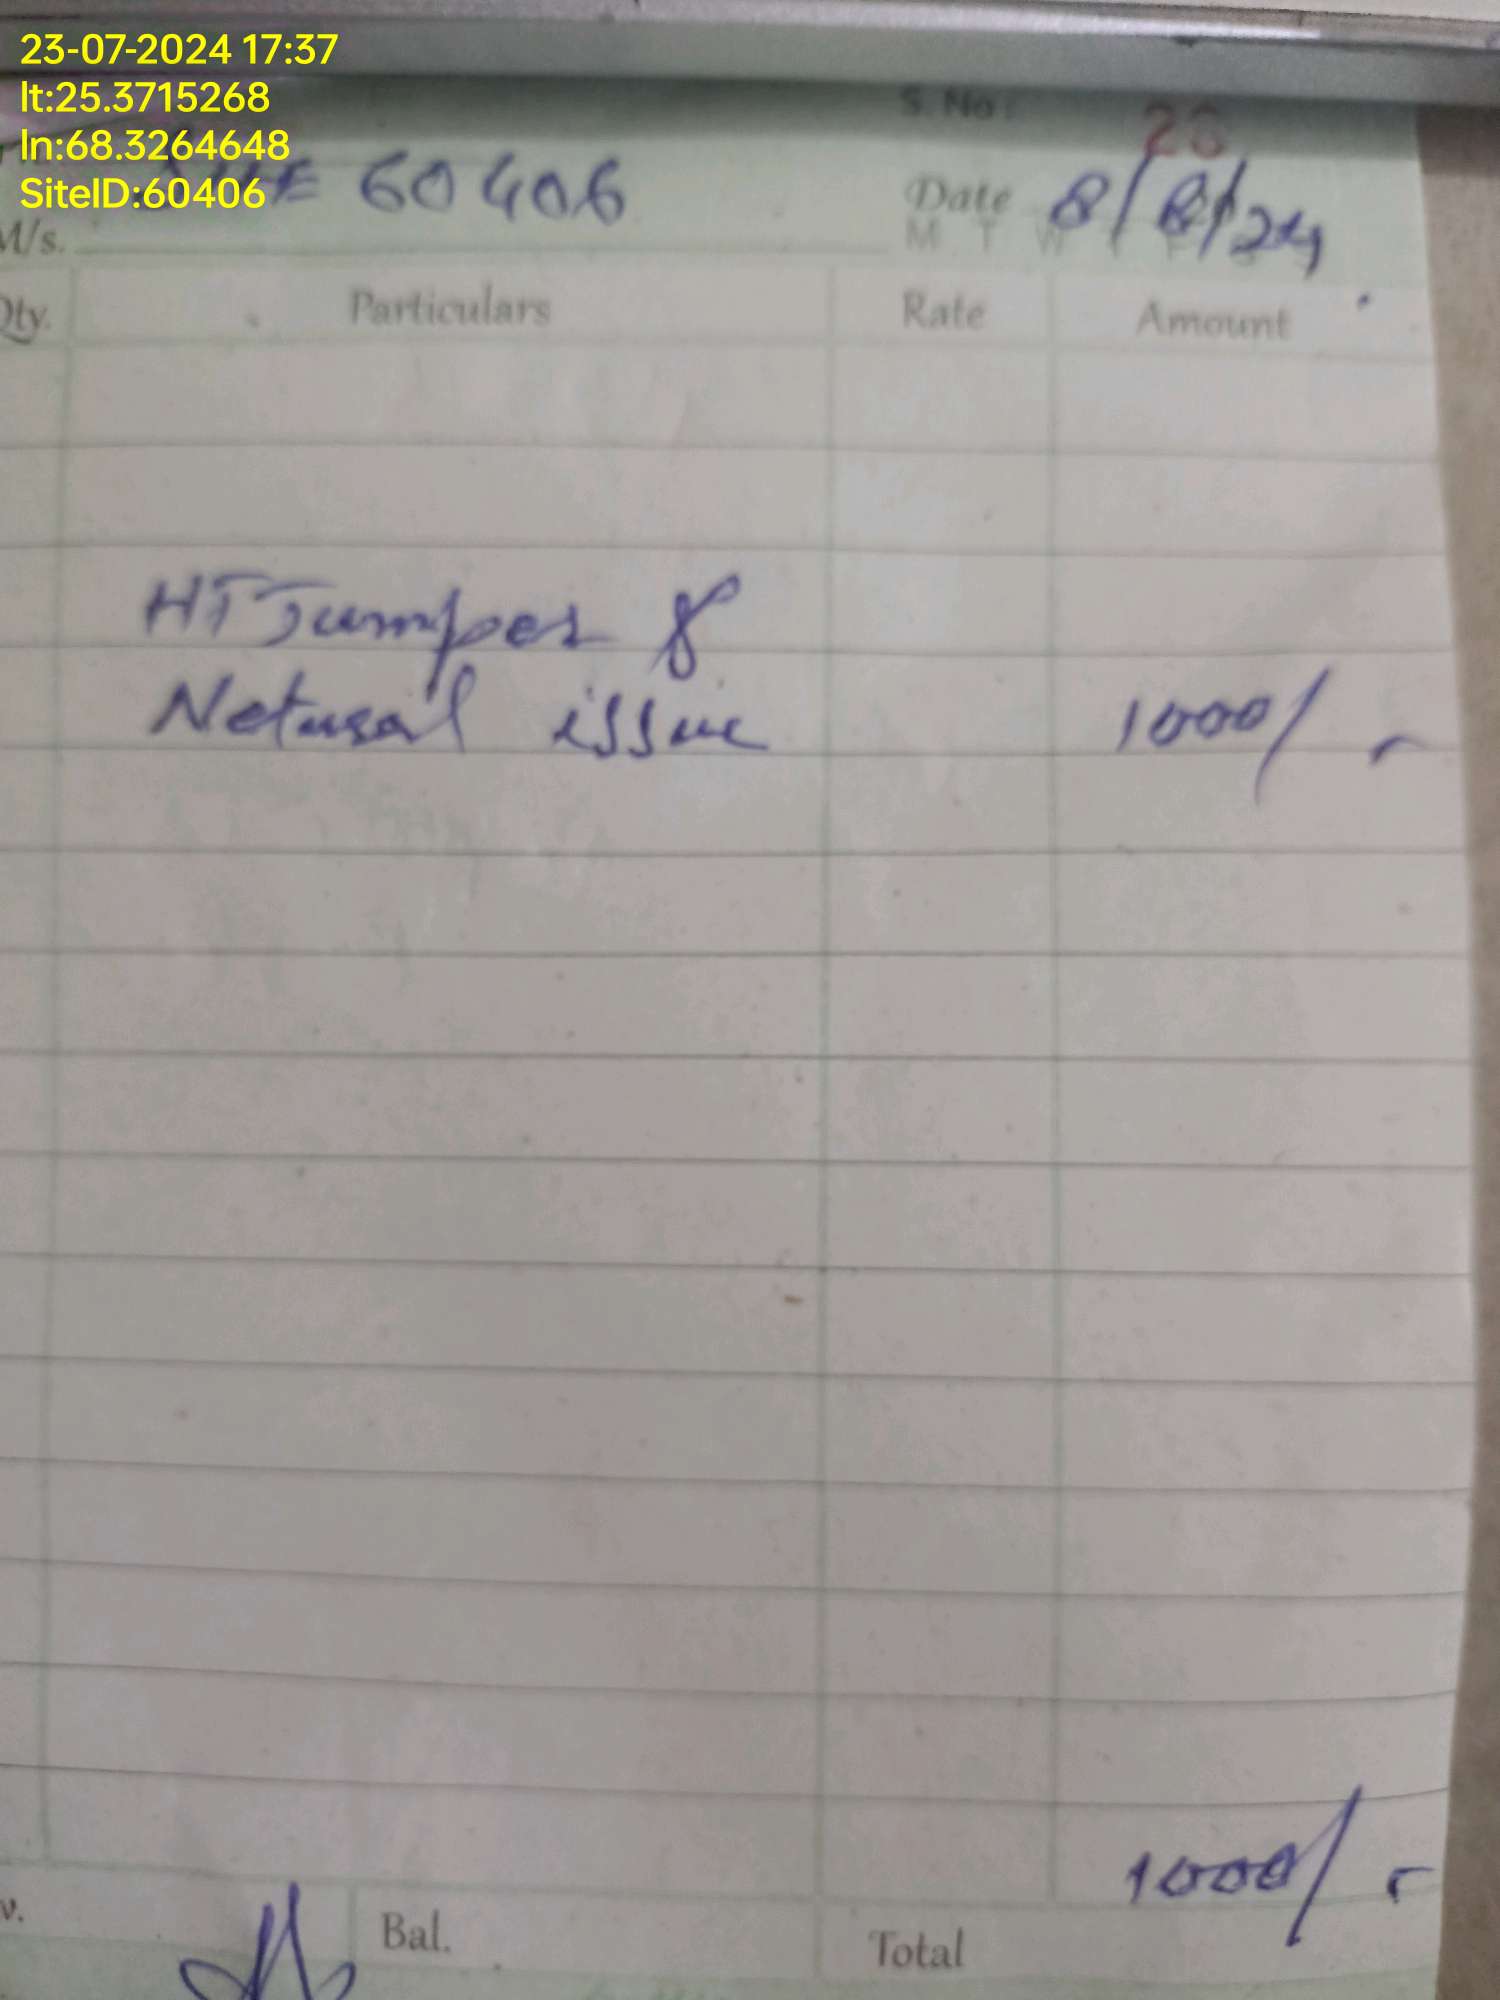 23-07-2024 17:37
lt:25.3715268
ln:68.3264648
SiteID:60406
S. No: 26
60406
Date 8/8/24
M/s. M T W
Qty. Particulars Rate Amount
HT Jumper &
Netural issue 1000/-
1000/-
v. Bal. Total